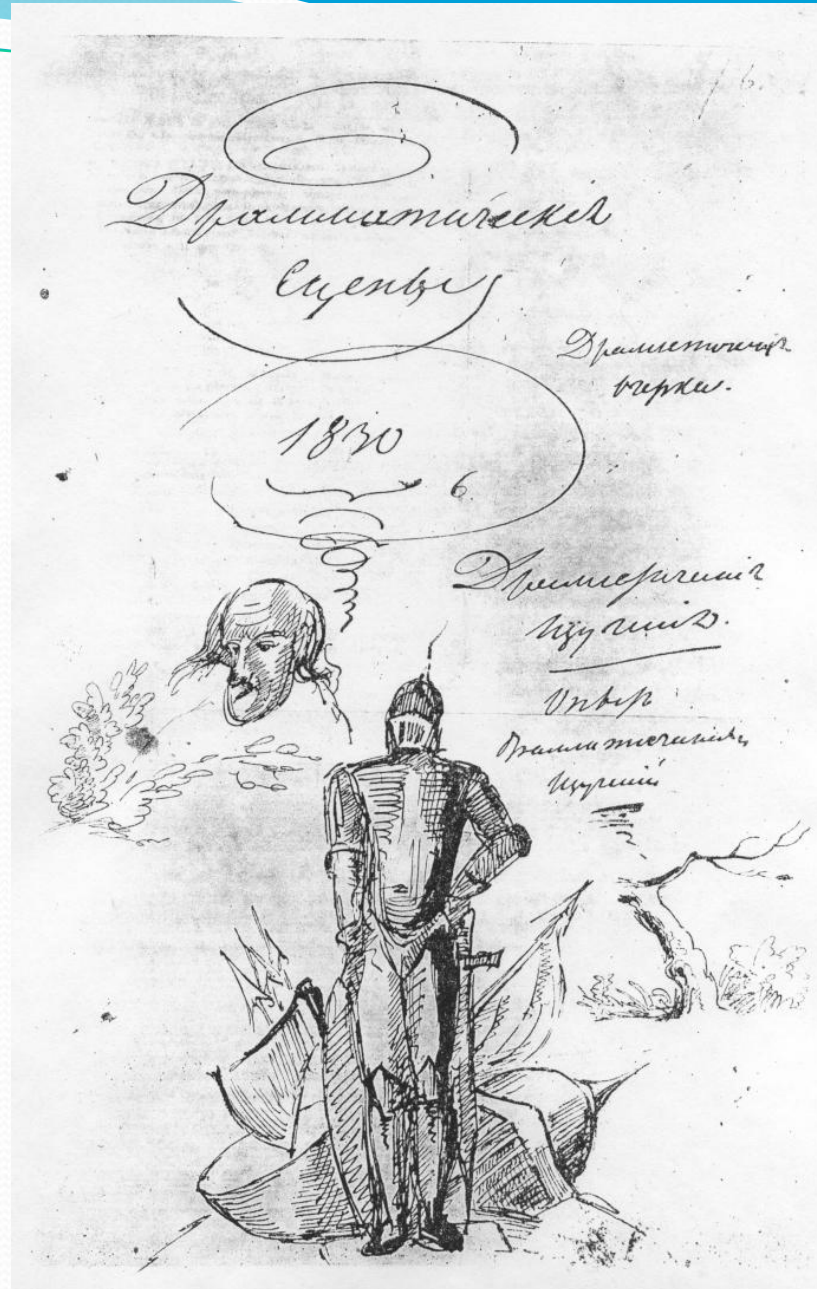 Драмматическія
Сцены
1830
6
Драмматическіе
очерки.
Драмматическія
Изученія.
Опытъ
Драмматическихъ
Изученій